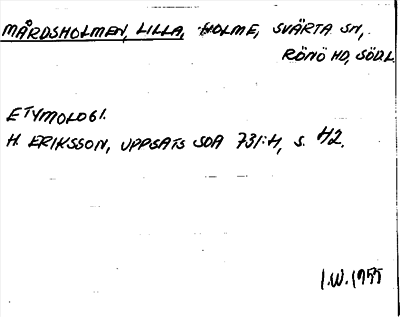 MÅRDSHOLMEN, LILLA, HOLME, SVÄRTA SN,
RÖNÖ HD, SÖDL.
ETYMOLOGI.
H. ERIKSSON, UPPSATS SOA 731:4, S. 42.
I.W. 1955